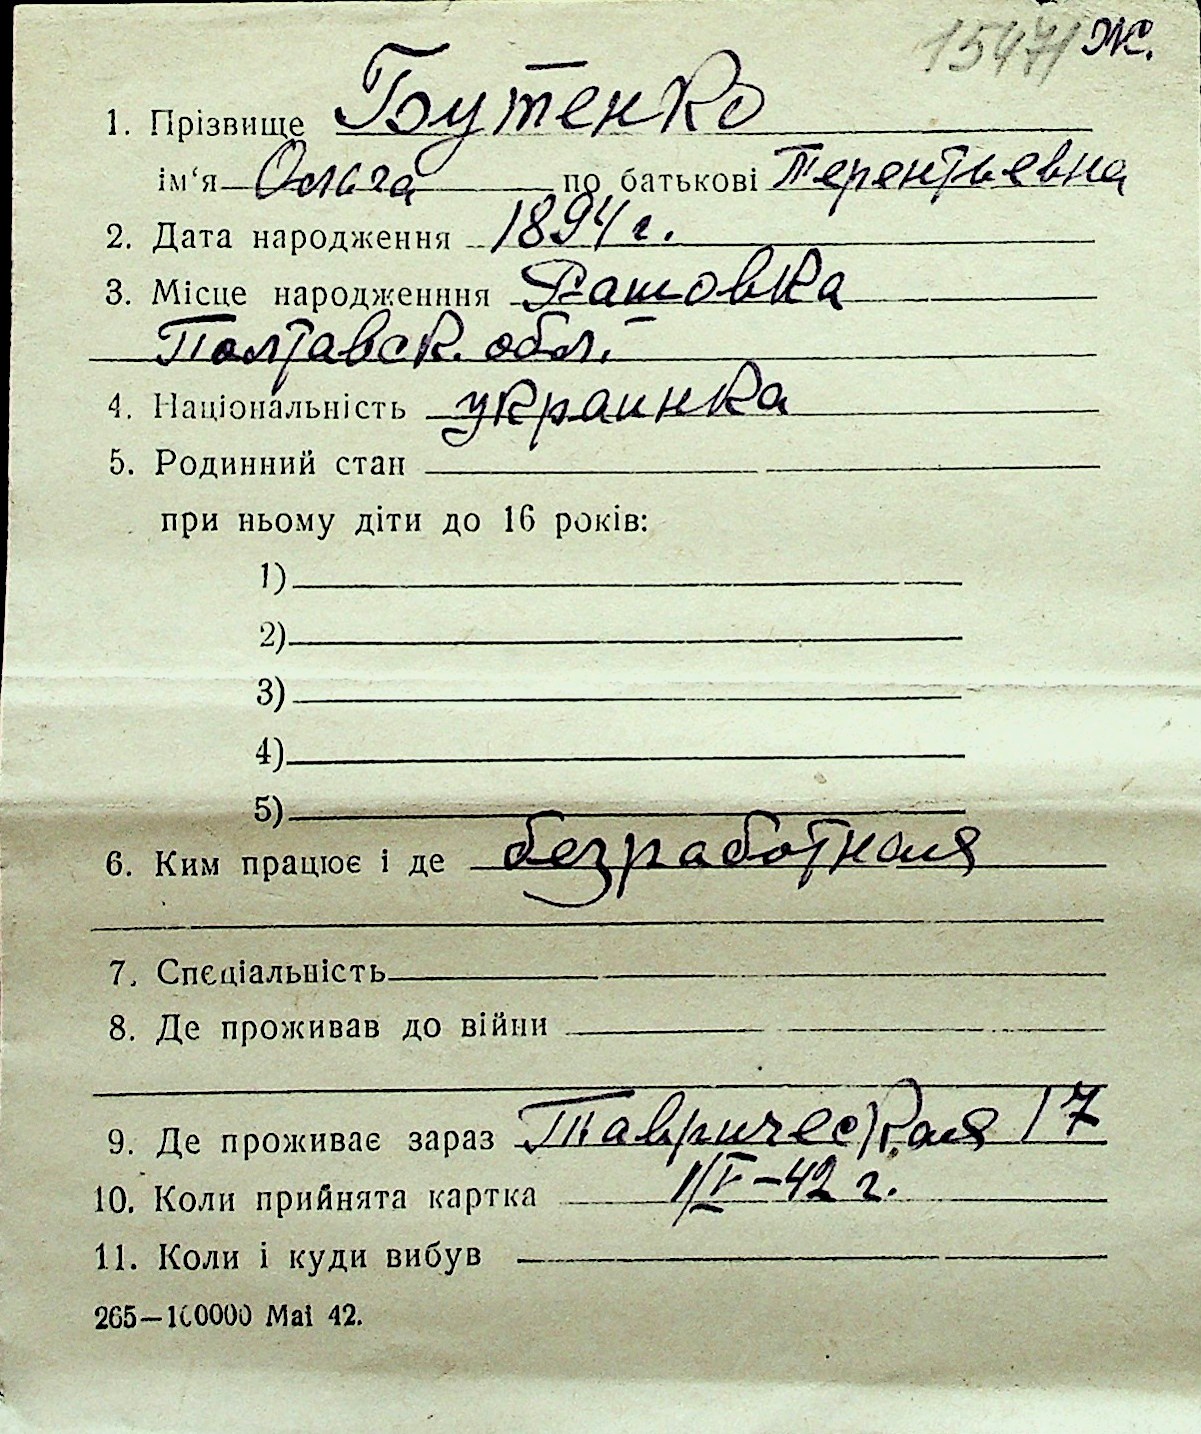 15471 Ж.
1. Прізвище Бутенко
ім‘я Ольга по батькові Терентьевна
2. Дата народження 1894 г.
3. Місце народженння Рашовка
Полтавск. обл.
4. Національність украинка
5. Родинний стан
при ньому діти до 16 років:
1)
2)
3)
4)
5)
6. Ким працює і де безработная
7. Спеціальність
8. Де проживав до війни
9. Де проживає зараз Таврическая 17
10. Коли прийнята картка -42 г.
11. Коли і куди вибув
265—100000 Mai 42.